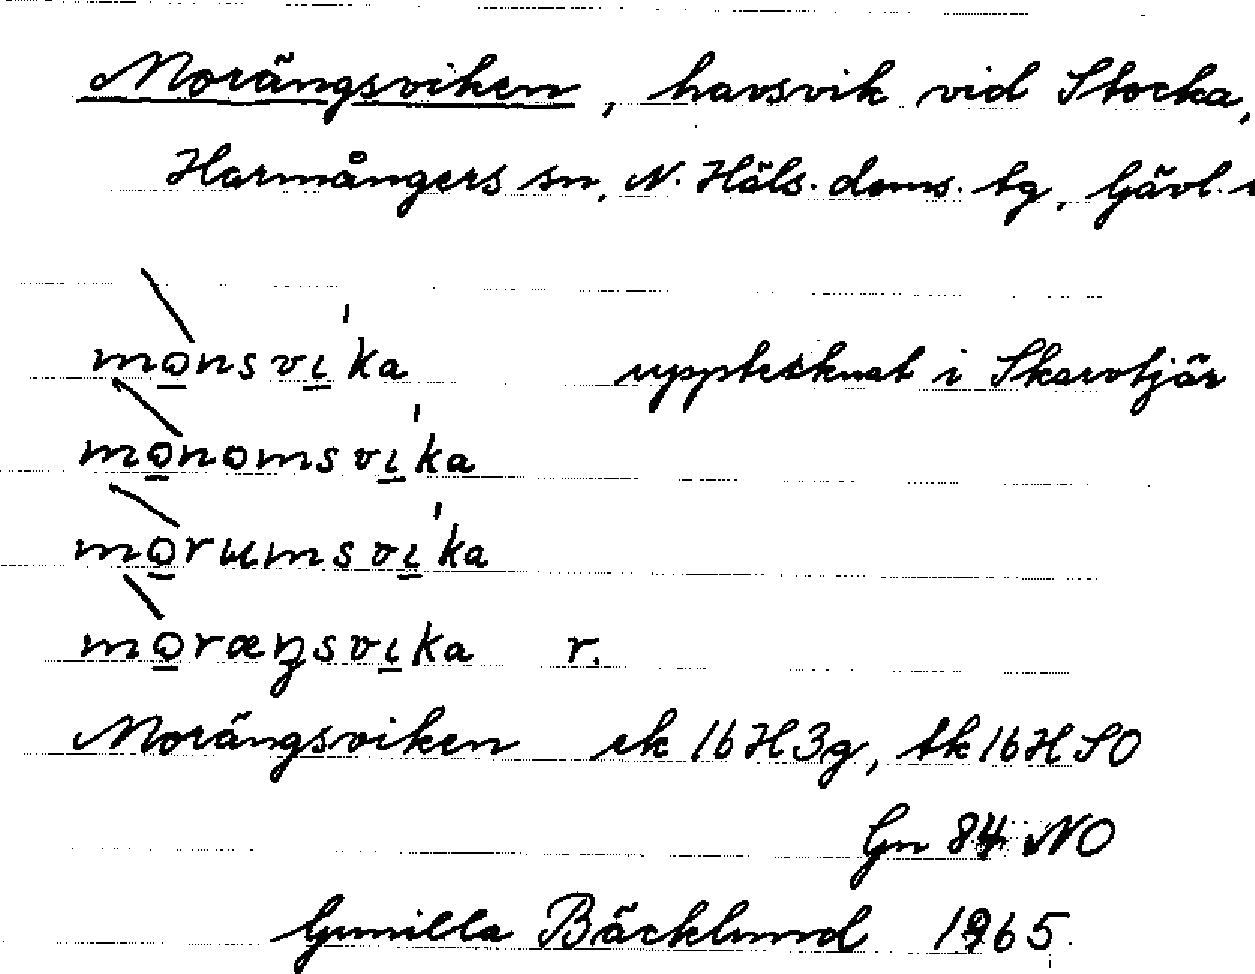 Morängsviken, havsvik vid Stocka,
Harmångers sn, N. Häls. doms. tg, Gävl.
mo̲nsvi̲ka upptecknat i Skarvtjär
mo̲nomsvi̲ka
mo̲rumsvi̲ka
mo̲ræŋsvi̲ka r.
Morängsviken ek 16H3g, tk 16H SO
Gn 84 NO
Gunilla Bäcklund 1965.